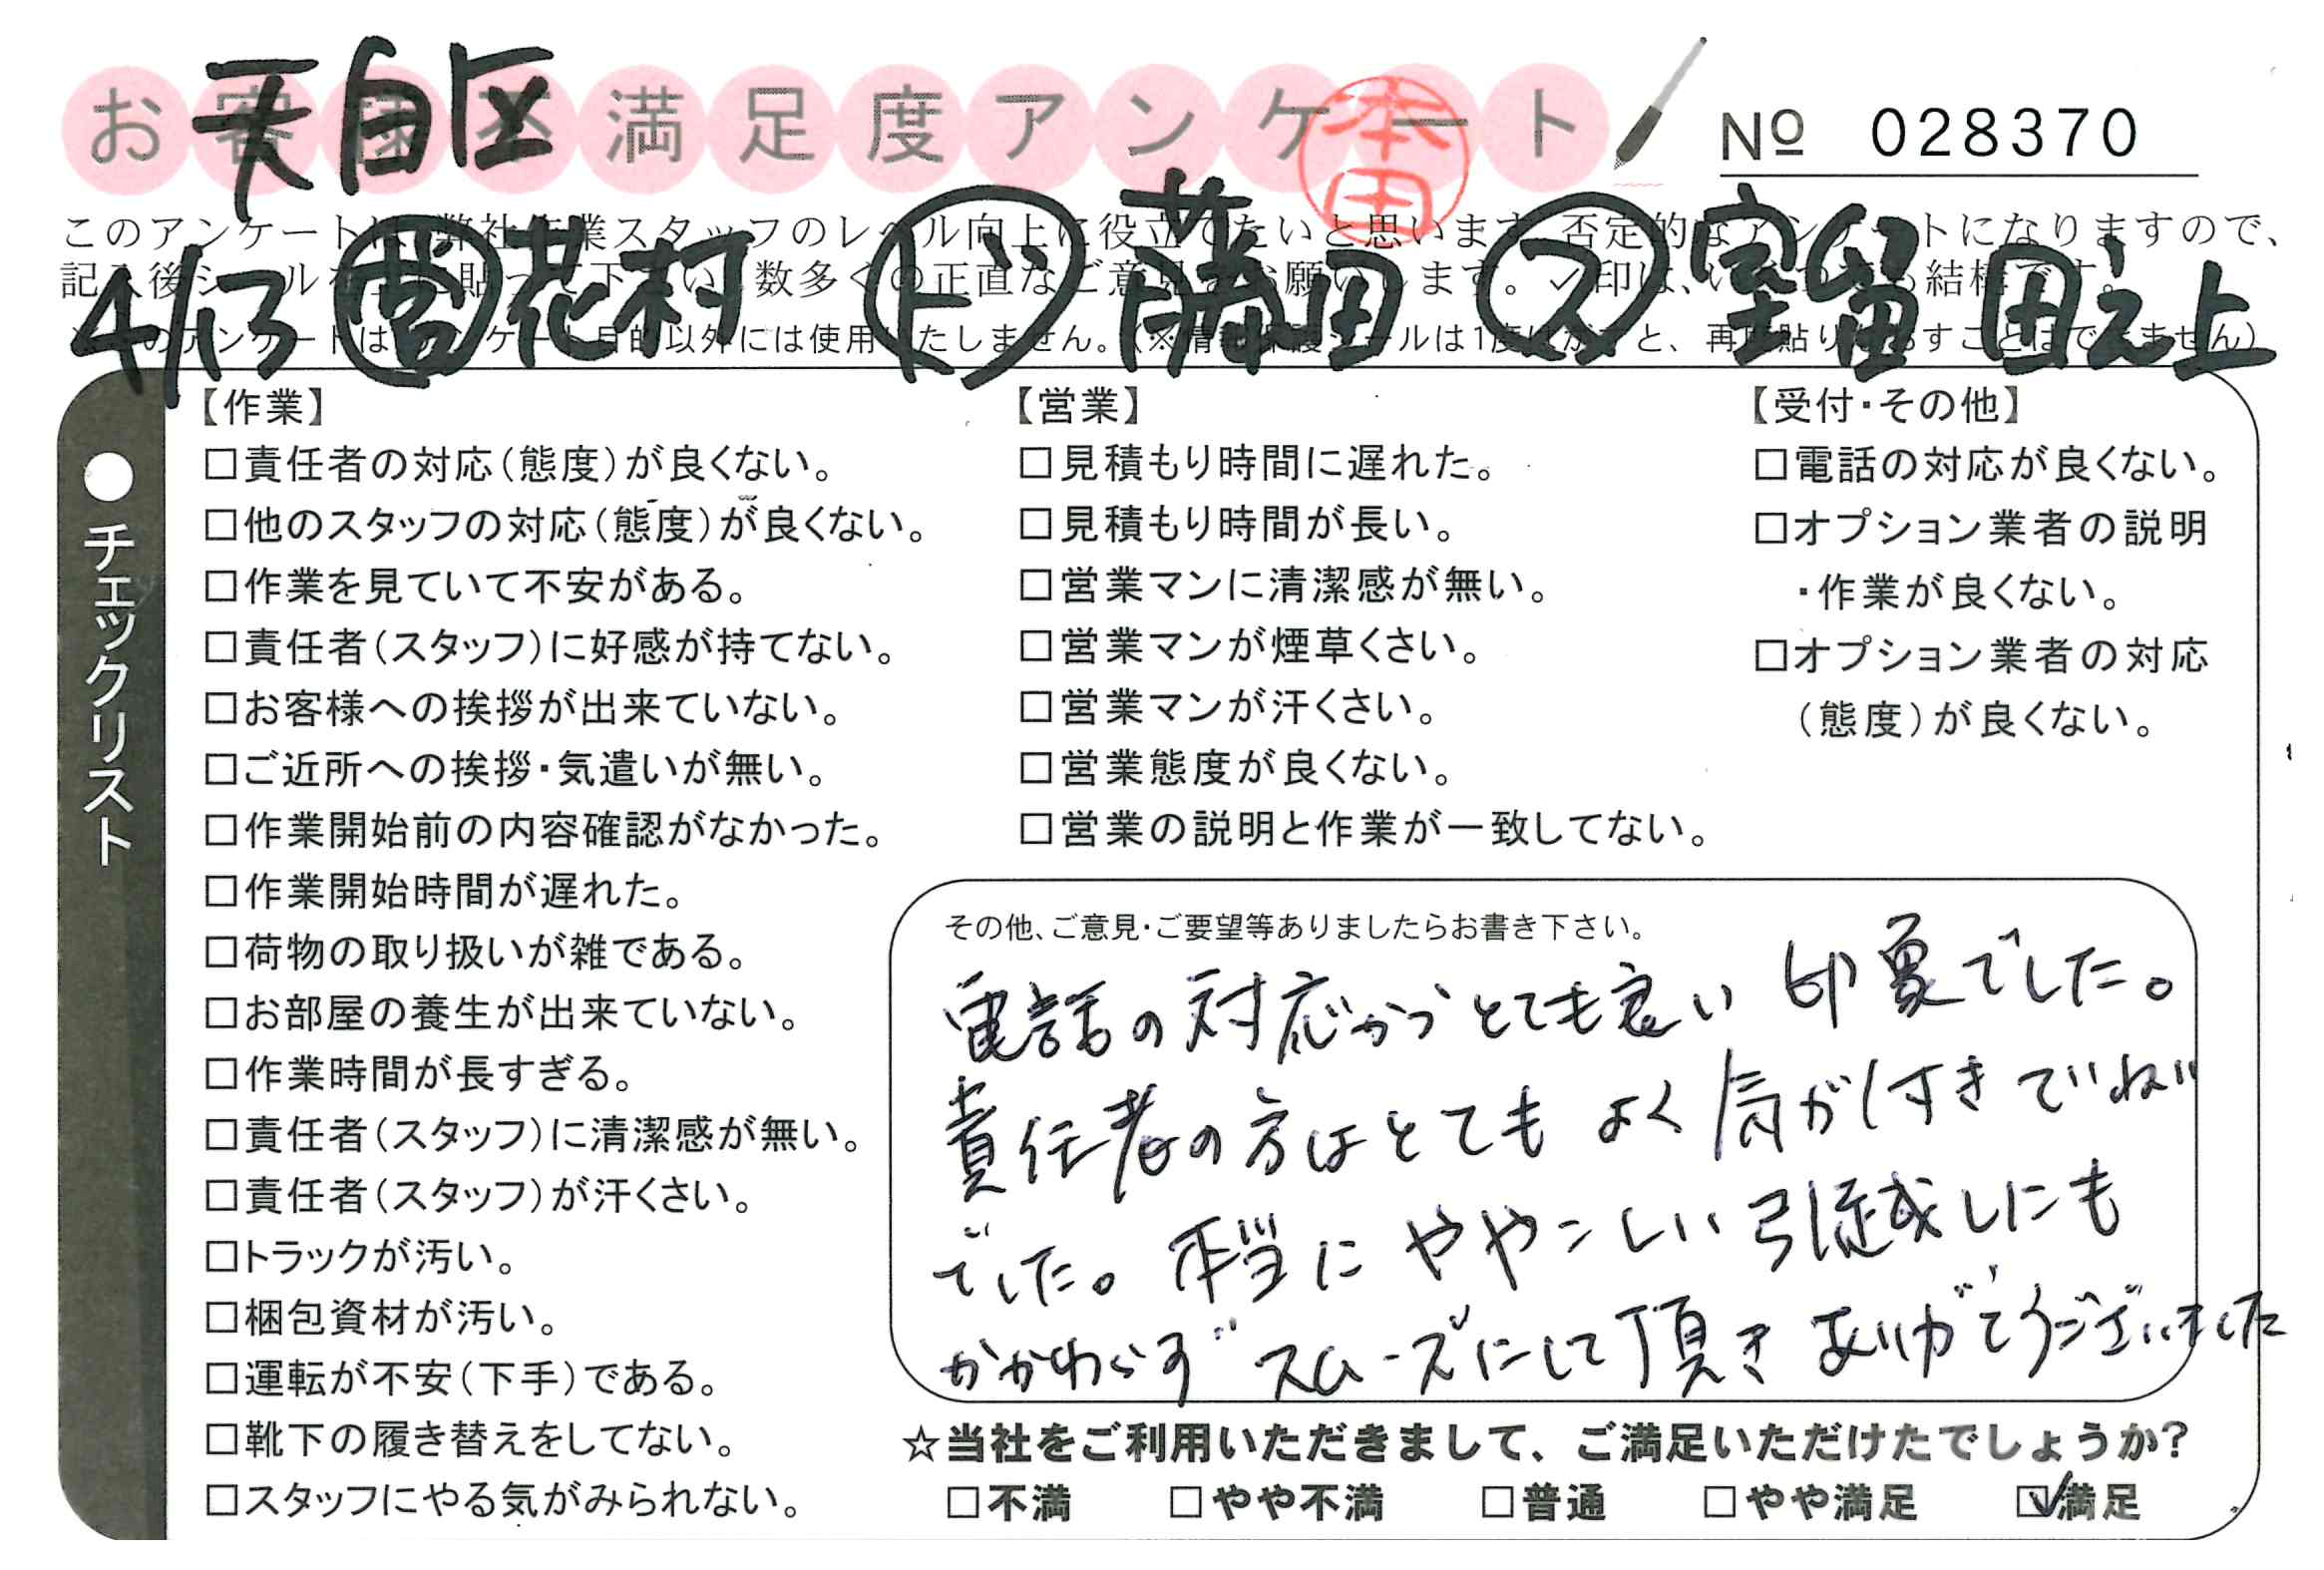 お客様不満足度アンケート
天白区
本田
Nº 028370
このアンケートは、弊社作業スタッフのレベル向上に役立てたいと思います。否定的なアンケートになりますので、
記入後シールを貼って下さい。数多くの正直なご意見をお願いします。✓印は、いくつでも結構です。
のアンケートはアンケート目的以外には使用いたしません。(※情報保護シールは1度はがすと、再度貼りなおすことはできません)
4/13 営 花村 ド 藤田 ス 室留 田之上
●チェックリスト
【作業】
□責任者の対応(態度)が良くない。
□他のスタッフの対応(態度)が良くない。
□作業を見ていて不安がある。
□責任者(スタッフ)に好感が持てない。
□お客様への挨拶が出来ていない。
□ご近所への挨拶・気遣いが無い。
□作業開始前の内容確認がなかった。
□作業開始時間が遅れた。
□荷物の取り扱いが雑である。
□お部屋の養生が出来ていない。
□作業時間が長すぎる。
□責任者(スタッフ)に清潔感が無い。
□責任者(スタッフ)が汗くさい。
□トラックが汚い。
□梱包資材が汚い。
□運転が不安(下手)である。
□靴下の履き替えをしてない。
□スタッフにやる気がみられない。
【営業】
□見積もり時間に遅れた。
□見積もり時間が長い。
□営業マンに清潔感が無い。
□営業マンが煙草くさい。
□営業マンが汗くさい。
□営業態度が良くない。
□営業の説明と作業が一致してない。
【受付・その他】
□電話の対応が良くない。
□オプション業者の説明
・作業が良くない。
□オプション業者の対応
(態度)が良くない。
その他、ご意見・ご要望等ありましたらお書き下さい。
電話の対応かつとても良い印象でした。
責任者の方はとてもよく気が付きていねい
でした。本当にややこしい引越しにも
かかわらずスムーズにして頂きありがとうございました
☆当社をご利用いただきまして、ご満足いただけたでしょうか?
□不満 □やや不満 □普通 □やや満足 ☑満足